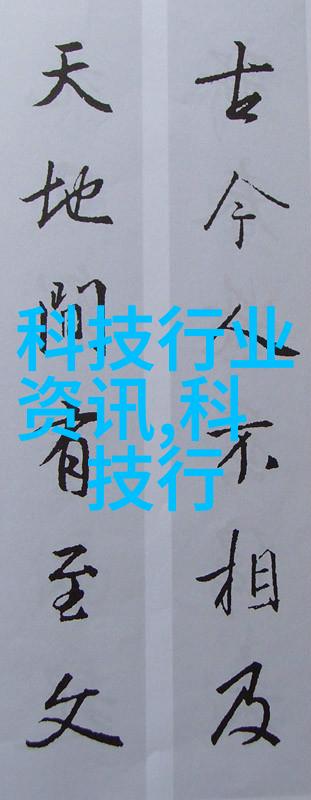 古今人不相及
天地間有至文
科技行业
资讯,科
技行